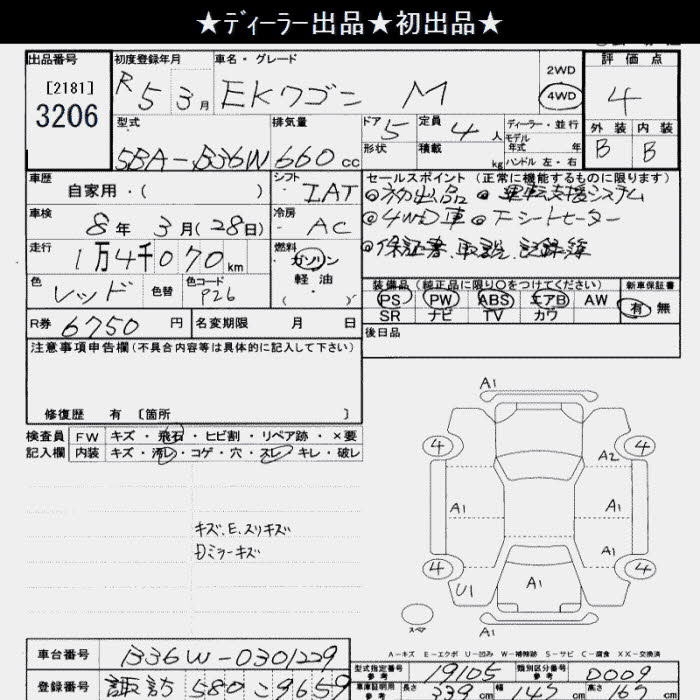 ★ディーラー出品★初出品★
出品番号 初度登録年月 車名・グレード 評価点
[2181]
3206
R5 3月 EKワゴン M 2WD 4WD 4
型式 排気量 ドア 5 定員 4人 ディーラー・並行 外装 内装
モデル年式 年
5BA-B36W 660cc 形状 積載 kg ハンドル 左・右 B B
車歴 シフト セールスポイント (正常に機能するものに限ります)
自家用・( ) IAT ◎初出品 ◎運転支援システム
車検 冷房 ◎4WD車 ◎Fシートヒーター
8年 3月(28日) AC
走行 燃料 ◎保証書、取説、記録簿
1万4千070km ガソリン
軽油
( )
色 色替 色コード 装備品 (純正品に限り○をつけてください) 新車保証書
レッド P26 PS PW ABS エアB AW 有 無
SR ナビ TV カワ
R券 6750円 名変期限 月 日 後日品
注意事項申告欄(不具合内容等は具体的に記入して下さい)
修復歴 有 [箇所 ]
検査員 FW キズ・飛石・ヒビ割・リペア跡・×要
記入欄 内装 キズ・汚レ・コゲ・穴・スレ・キレ・破レ
キズ、E、スリキズ
Dミラーキズ
A1
4 4
A2
A1 A1
A1
4 4
U1 A1
スペア
A1
A-キズ E-エクボ U-凹み W-補修跡 S-サビ C-腐食 XX-交換済
車台番号 B36W-0301229
型式指定番号 参考 19105 類別区分番号 参考 0009
登録番号 諏訪 580 こ 9659
車庫証明用 参考 長さ 339cm 幅 147cm 高さ 167cm